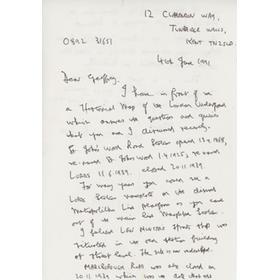 12 CLARENDON WAY,
TUNBRIDGE WELLS,
KENT TN2 5LD.
0892 31651
4th June 1991
Dear Geoffrey,
I have in front of me
a Historical Map of the London Underground
which answers the question and queries
that you and I discussed recently.
St John's Wood Road Station opened 13.4.1868,
re-named St John's Wood 1.4.1925, re-named
LORDS 11.6.1939. closed 20.11.1939.
For many years you could see a
Lords Station on the disused
Metropolitan Line platform as you came
out of the main line Marylebone Station.
I believe Lords
situated in the station building
at street level. The site is now
MARLBOROUGH ROAD was also closed on
20.11.1939 which was to